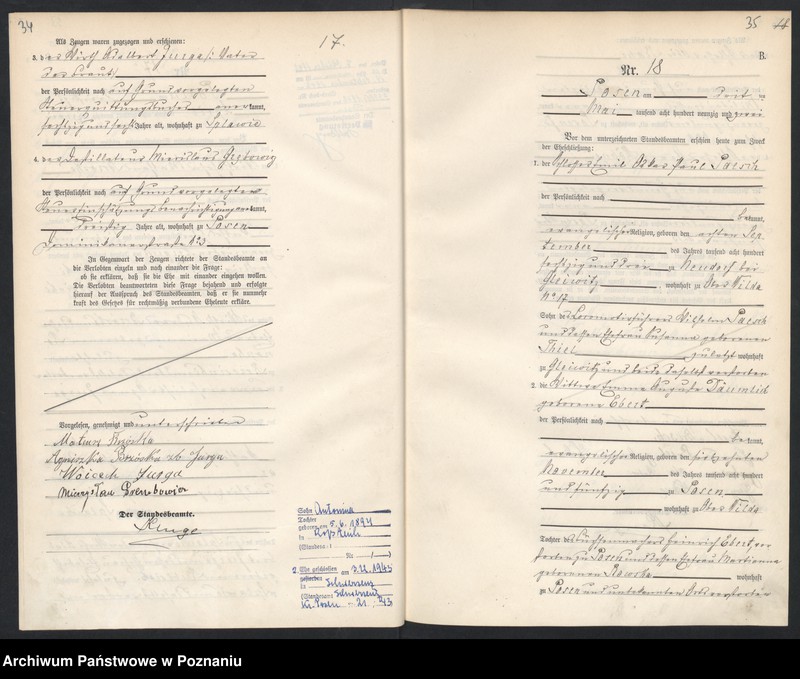 34
17.
Als Zeugen waren zugezogen und erschienen:
3. der Wirth Adalbert Jurga /: Vater
der Braut/
der Persönlichkeit nach auf Grund vorgelegten
Steuerquittungsbuches anerkannt,
sechszig und sechs Jahre alt, wohnhaft zu Splawie
4. der Destillateur
der Persönlichkeit nach auf Grund vorgelegter
Steuereinschätzungsbenachrichtigung anerkannt,
Dreißig Jahre alt, wohnhaft zu Posen
Dominikanerstraße No 3
In Gegenwart der Zeugen richtete der Standesbeamte an
die Verlobten einzeln und nach einander die Frage:
ob sie erklären, daß sie die Ehe mit einander eingehen wollen.
Die Verlobten beantworteten diese Frage bejahend und erfolgte
hierauf der Ausspruch des Standesbeamten, daß er sie nunmehr
kraft des Gesetzes für rechtmäßig verbundene Eheleute erkläre.
Vorgelesen, genehmigt und unterschrieben
Agnieszka zd. Jurga
Woiceh Jurga
Der Standesbeamte.
Sohn Antonina
Tochter
geboren am 5.6.1894
in
(Standesamt
Nr. — / —)
2. Ehe geschlossen am 1943
gestorben
in Schwersenz
(Standesamt Schwersenz
Kr. Posen 21/43
35
B.
Nr. 18
Posen am drit en
Mai tausend acht hundert neunzig und zwei
Vor dem unterzeichneten Standesbeamten erschien heute zum Zweck
der Eheschließung:
1. der Schlosser Emil Oskar Paul Paesch
der Persönlichkeit nach
bekannt,
evangelischer Religion, geboren den achten Sep
tember des Jahres tausend acht hundert
sechszig und drei zu Neudorf bei
Gleiwitz, wohnhaft zu Ober Wilda
No 17
Sohn des Locomotivführers Wilhelm Paesch
und dessen Ehefrau Susanna geborenen
Thiel zuletzt wohnhaft
zu Gleiwitz und beide daselbst verstorben
2. die Wittwe Emma Auguste Däumlich
geborene Ebert
der Persönlichkeit nach
bekannt,
evangelischer Religion, geboren den fünfzehnten
November des Jahres tausend acht hundert
und fünfzig zu Posen
wohnhaft zu Ober Wilda
Tochter des Büchsenmachers Heinrich Ebert, ver
storben zu Posen und dessen Ehefrau Marianna
geborenen wohnhaft
zu Posen und unbekannten Orts verstorben
Archiwum Państwowe w Poznaniu